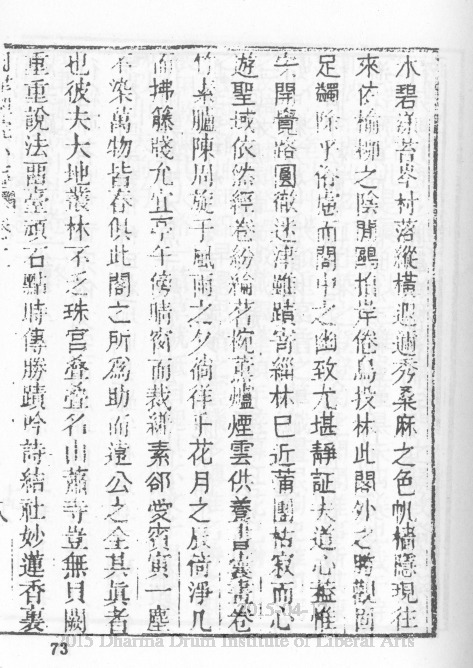 水碧漾苔岑村落縱橫遐邇秀桑麻之色帆檣隱現往
來依楡柳之陰閒鷗傍岸倦鳥投林此閣外之時觀固
足蠲除乎俗慮而閣中之幽致尤堪靜証夫道心蓋惟
開覺路圓徹迷津雖蹟寄緇林已近蒲團枯寂而心
遊聖域依然經卷紛綸茗椀薰爐煙雲供養書囊畫卷
竹素臚陳周旋于風雨之夕徜徉于花月之辰倚淨几
而拂籐牋允宜亭午傍晴窗而裁禪素郤愛賓寅一塵
不染萬物皆春俱此閣之所爲助而遠公之全其眞者
也彼夫大地叢林不乏珠宮疊疊名山蕭寺豈無貝闕
重重說法臺頑石點時傳勝蹟吟詩結社妙蓮香裏
73
2015-04-
2015 Dharma Drum Institute of Liberal Arts